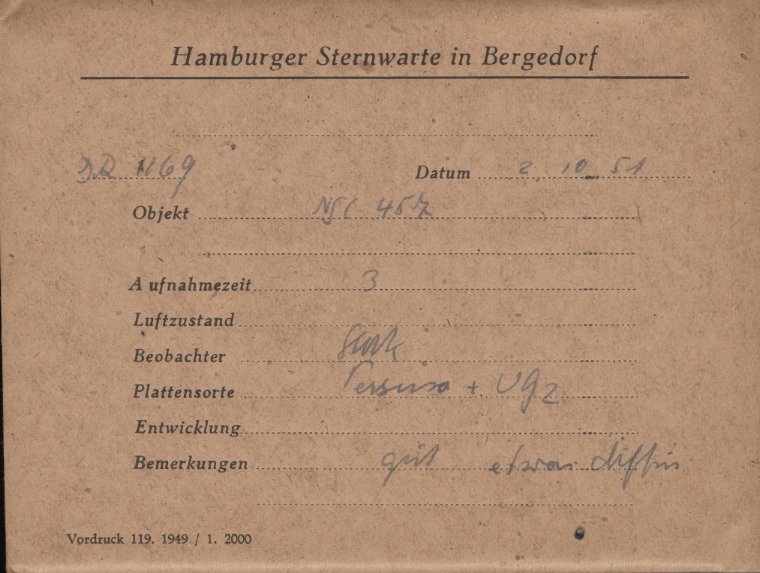 Hamburger Sternwarte in Bergedorf
1169 Datum 2. 10. 51
Objekt NGC 457
Aufnahmezeit 3
Luftzustand
Beobachter
Plattensorte + UG2
Entwicklung
Bemerkungen gut etwas diffus
Vordruck 119. 1949 / 1. 2000